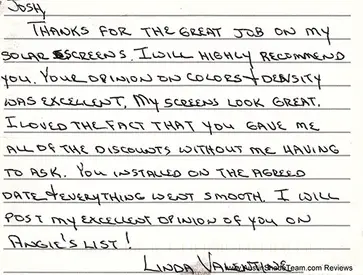 Josh,
THANKS FOR THE GREAT JOB ON MY
SOLAR SCREENS. I WILL HIGHLY RECOMMEND
YOU. YOUR OPINION ON COLORS + DENSITY
WAS EXCELLENT. MY SCREENS LOOK GREAT.
I LOVED THE FACT THAT YOU GAVE ME
ALL OF THE DISCOUNTS WITHOUT ME HAVING
TO ASK. YOU INSTALLED ON THE AGREED
DATE + EVERYTHING WENT SMOOTH. I WILL
POST MY EXCELLENT OPINION OF YOU ON
ANGIE'S LIST!
LINDA VALENTINE
Team.com Reviews